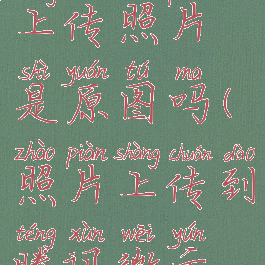 上传照片
shì yuán tú ma
是原图吗(
zhào piàn shàng chuán dào
照片上传到
téng xùn wēi yún
腾讯微云